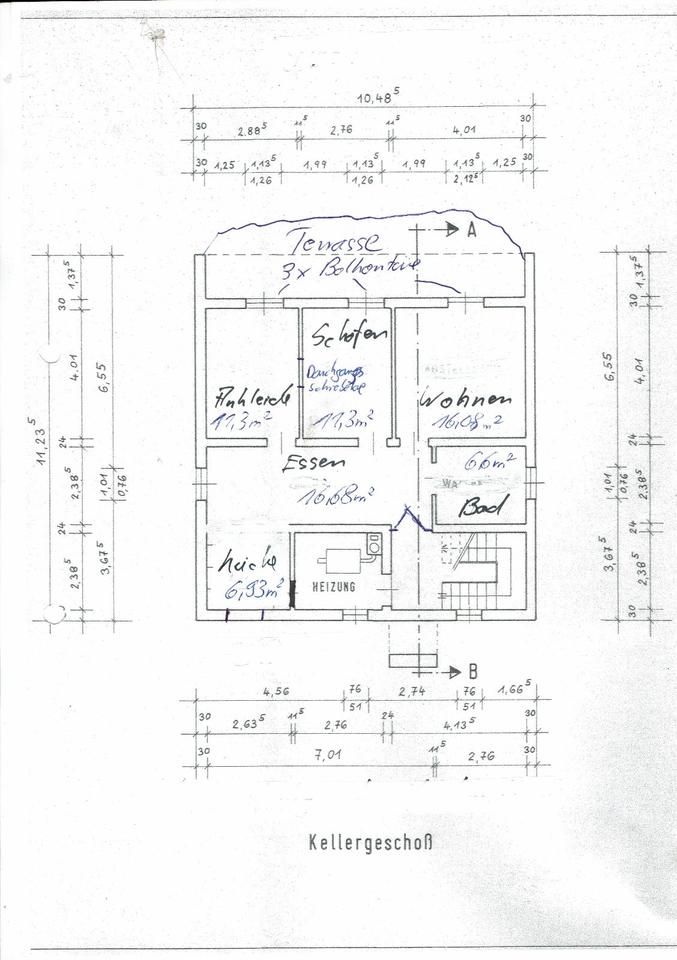 10,48⁵
30 2.88⁵ 11⁵ 2,76 11⁵ 4,01 30
30 1,25 1,13⁵ 1,99 1,13⁵ 1,99 1,13⁵ 1,25 30
1,26 1,26 2,12⁵
A
Terrasse
3x Balkontüre
Schlafen
Durchgangs
Ankleide
11,3m²
11,3m²
Wohnen
16,08m²
Essen
16,68m²
6,6m²
Bad
Küche
6,93m²
HEIZUNG
B
11,23⁵
1,37⁵
30
4,01
24
2,38⁵
24
2,38⁵
6,55
1,01
0,76
3,67⁵
6,55
1,01
0,76
3,67⁵
1,37⁵
30
4,01
24
2,38⁵
24
2,38⁵
30
4,56 76 2,74 76 1,66⁵
51 51
30 2,63⁵ 11⁵ 2,76 24 4,13⁵ 30
30 7,01 11⁵ 2,76 30
Kellergeschoß